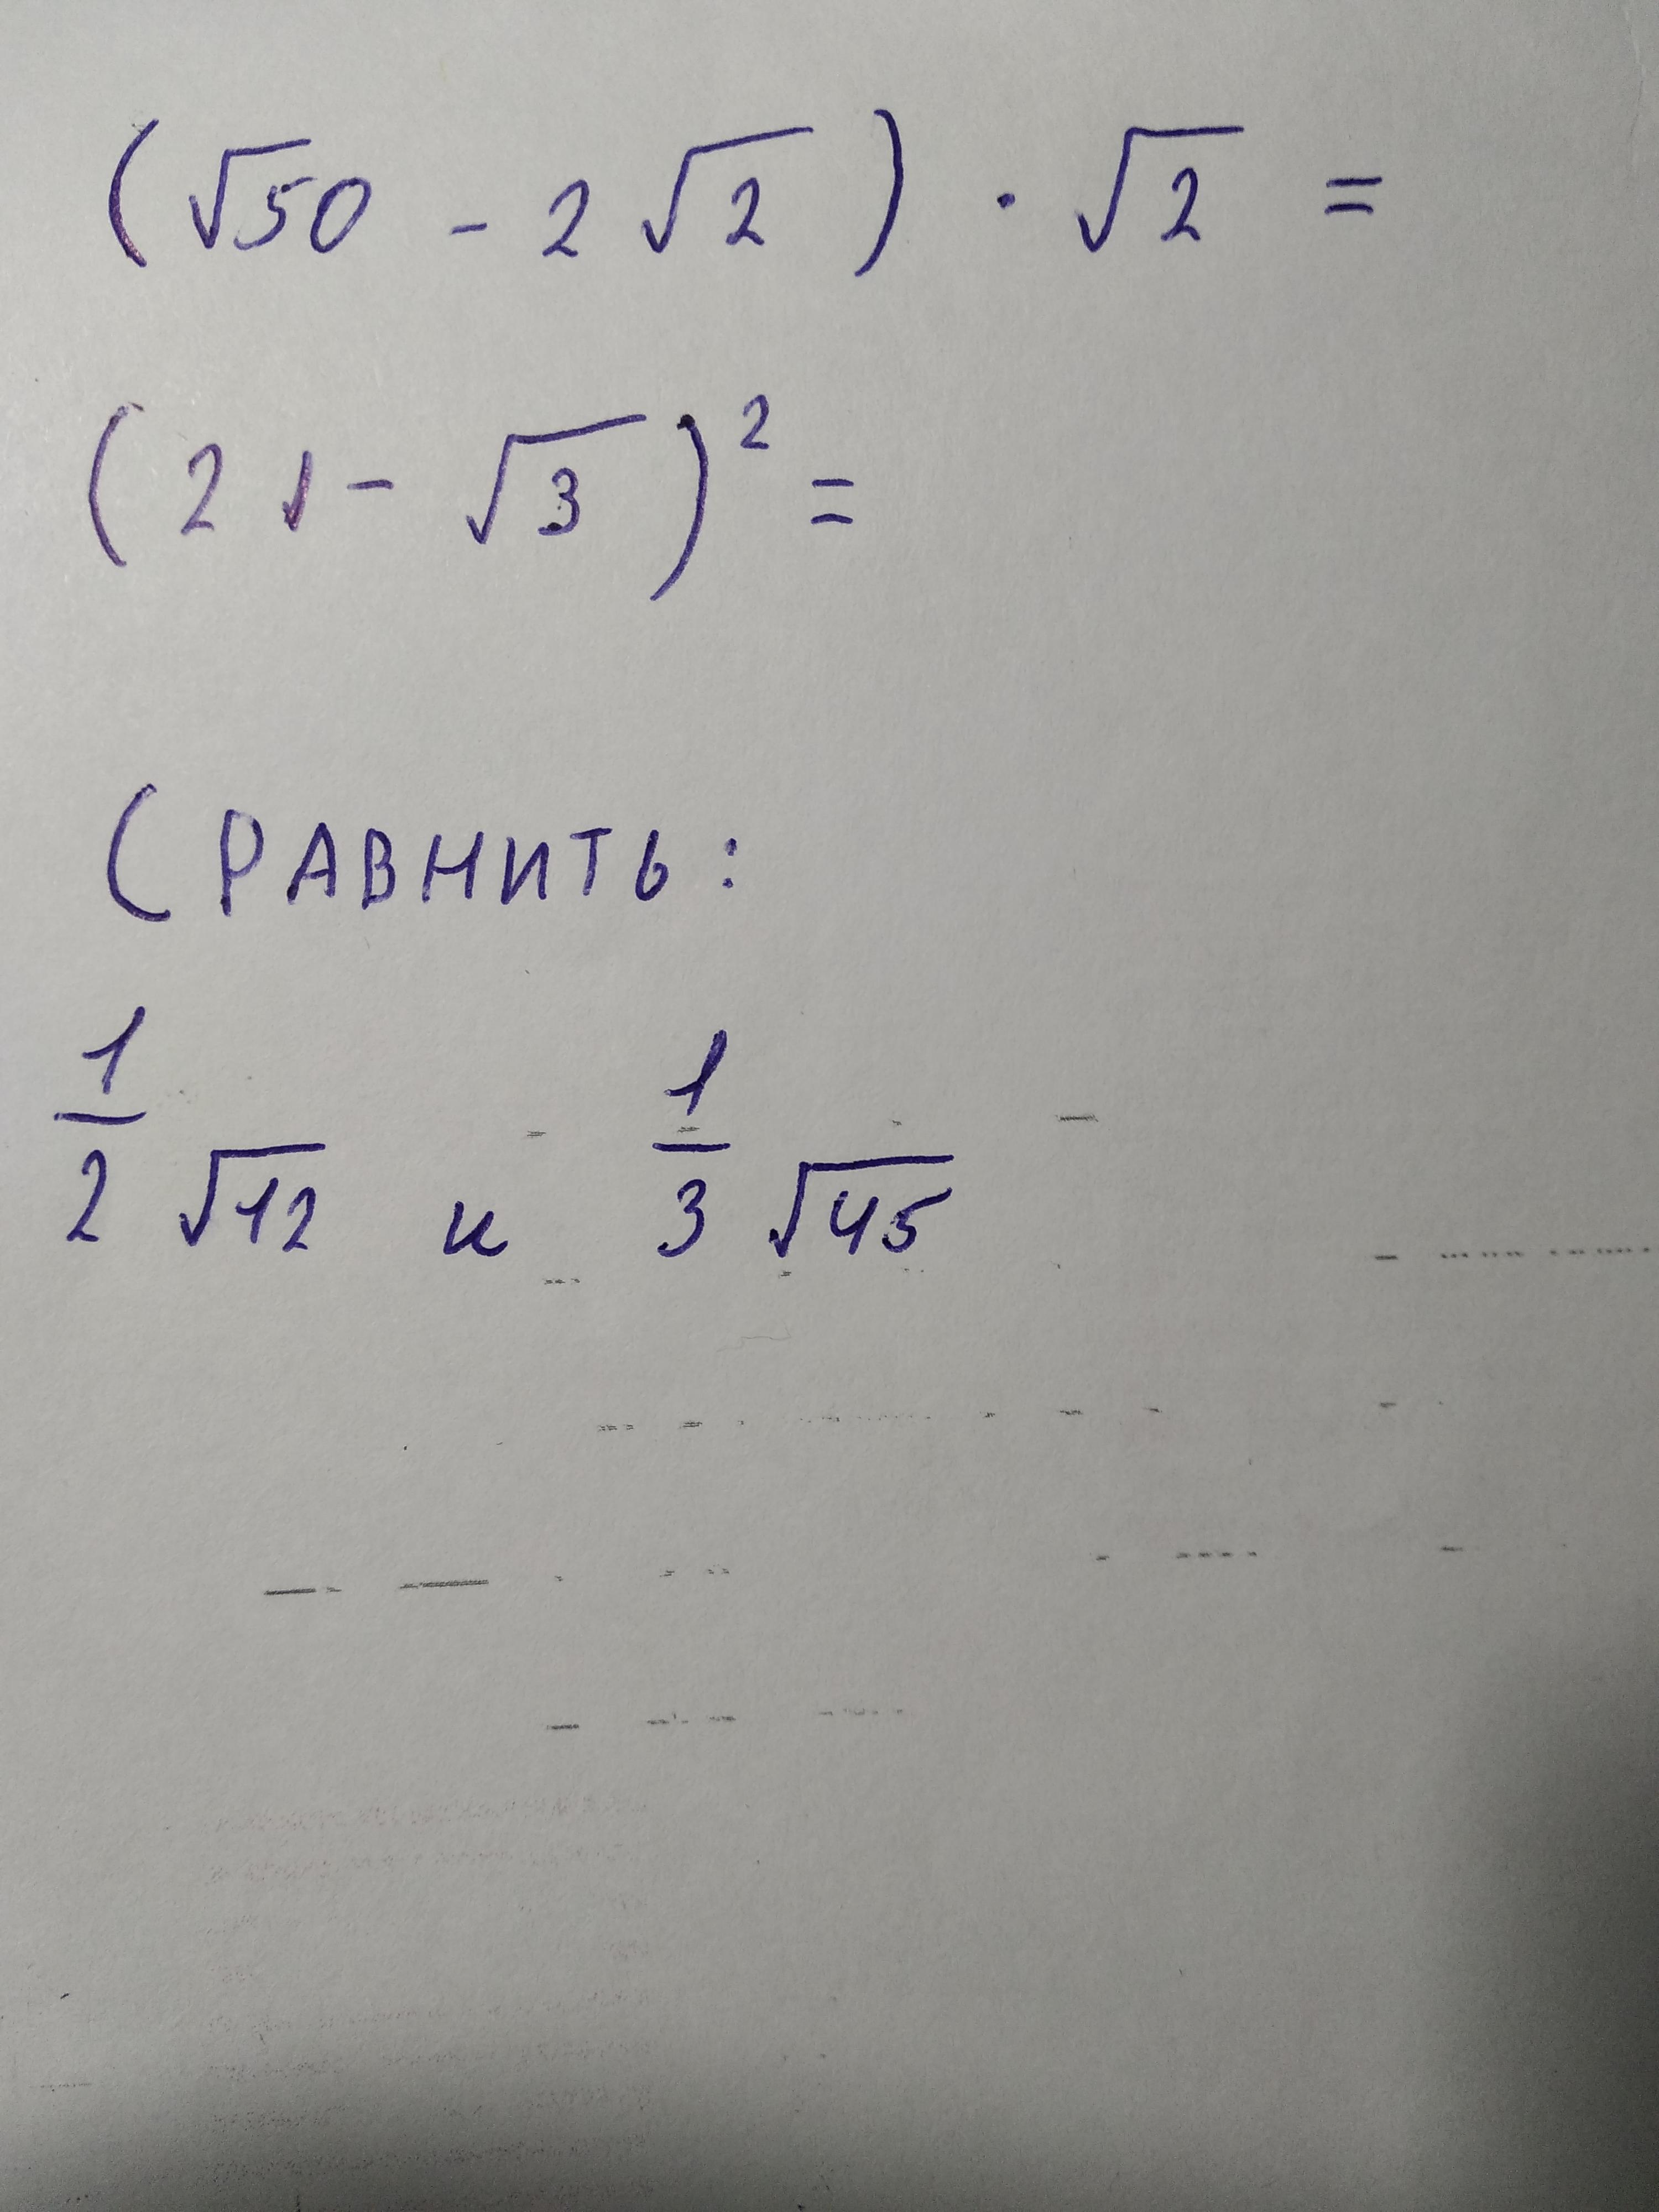 (√50 - 2√2) · √2 =
(2 - √3)² =
СРАВНИТЬ:
1/2 √12 и 1/3 √45